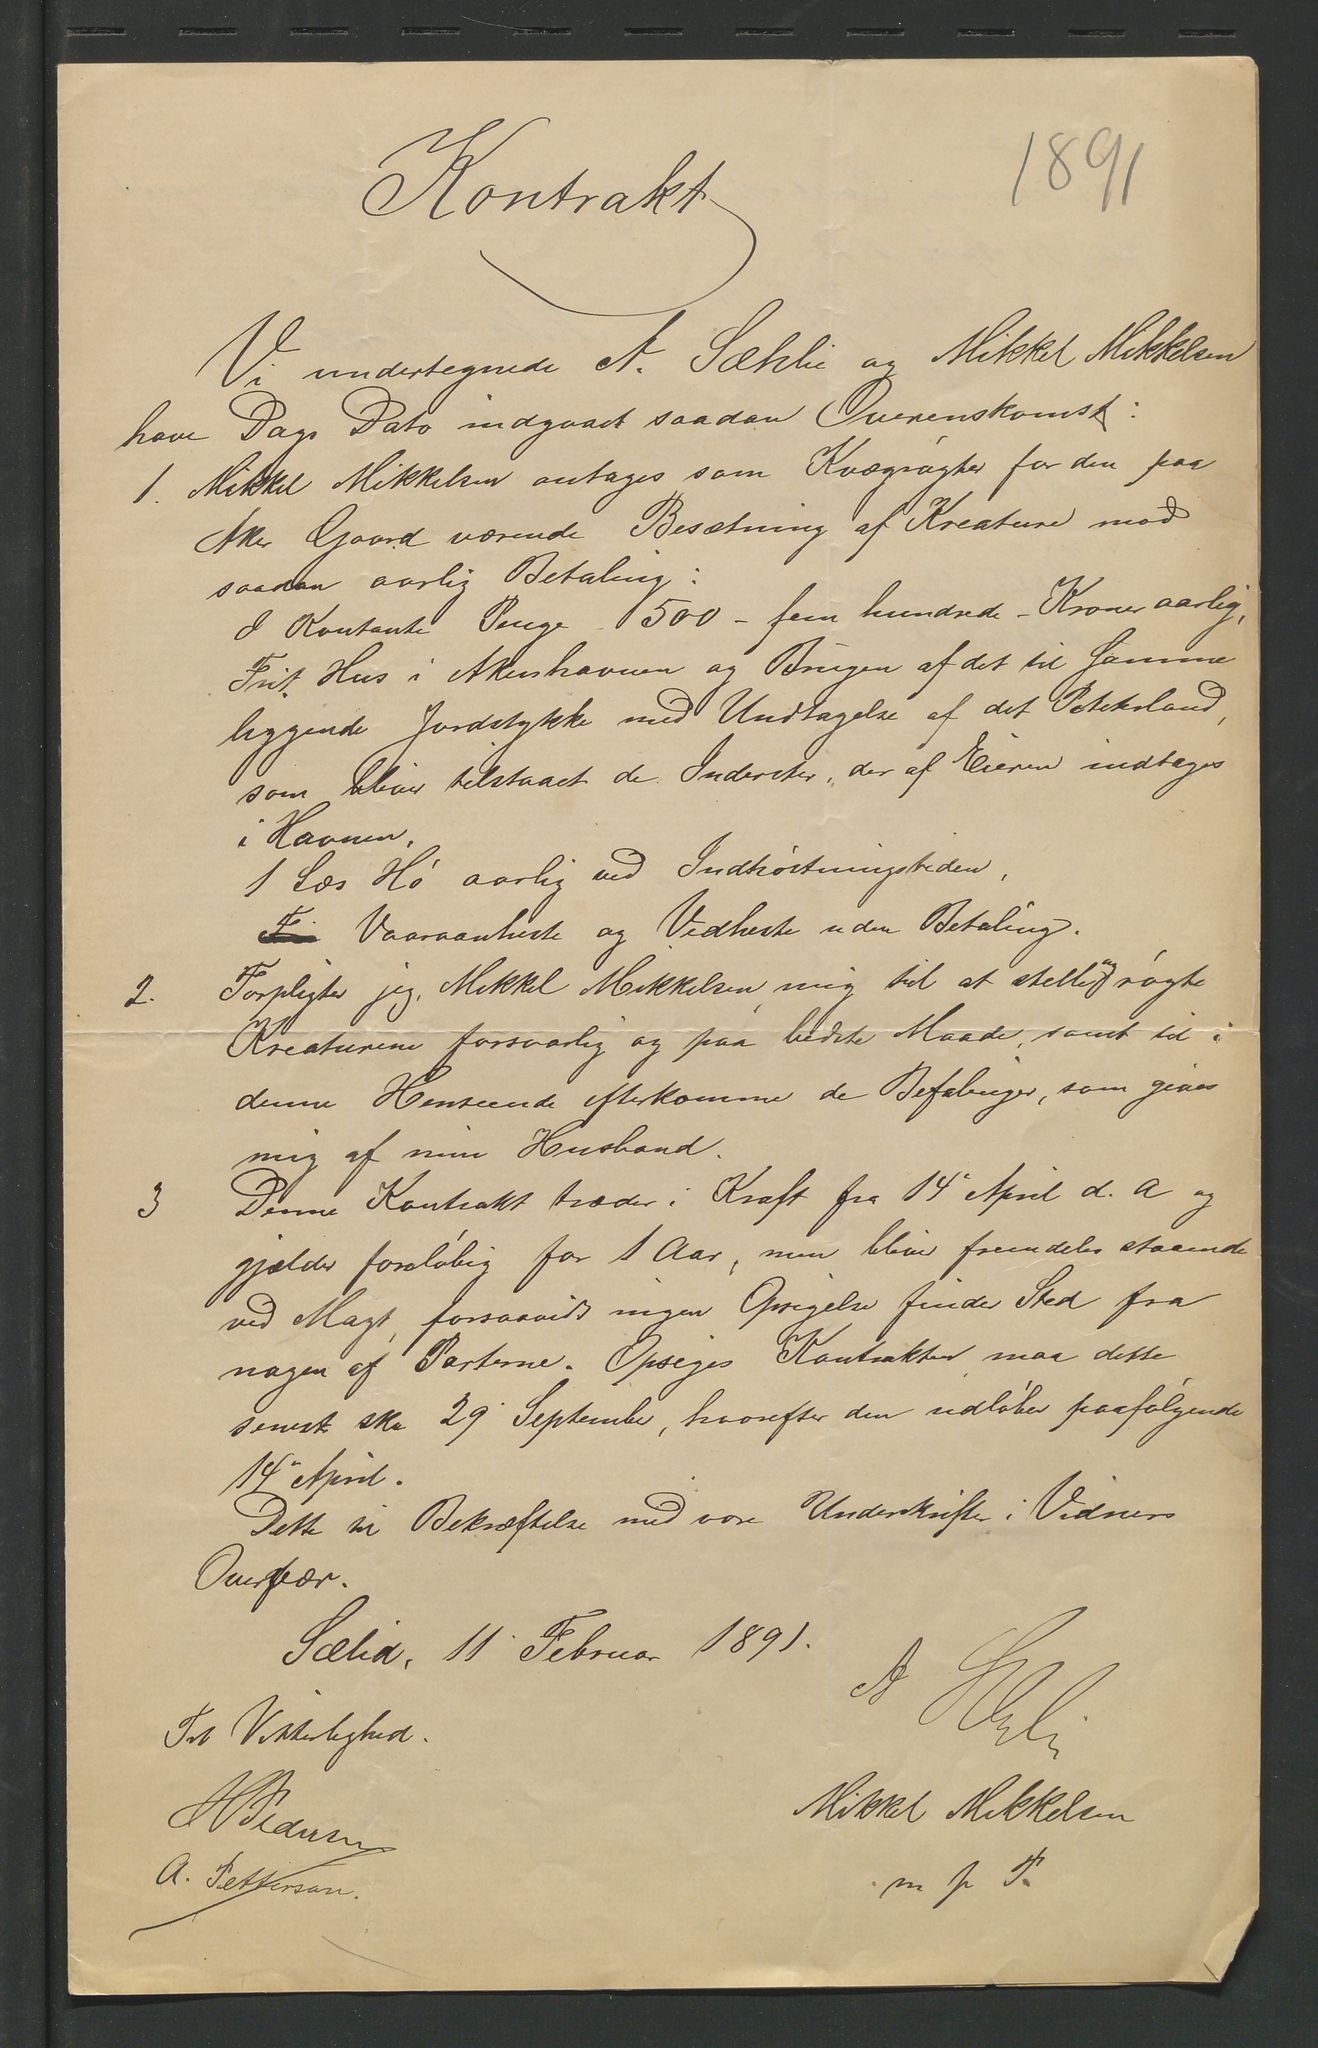 1891
Kontrakt
Vi undertegnede A. Sæhlie og Mikkel Mikkelsen
have Dags Dato indgaaet saadan Overenskomst:
1. Mikkel Mikkelsen antages som Kvægrøgter for den paa
Aker Gaard værende Besætning af Kreature mod
saadan aarlig Betaling:
I Kontante Penge 500 - fem hundrede - Kroner aarlig,
Frit Hus i Akershavnen og Brugen af det til Samme
liggende Jordstykke med Undtagelse af det Potetesland,
som bliver tilstaaet de Inderster, der af Eieren indtages
i Havnen.
1 Læs Hø aarlig ved Indhøstningstiden,
Vaaraanheste og Vedheste uden Betaling.
2. Forpligter jeg, Mikkel Mikkelsen, mig til at stelle og røgte
Kreaturene forsvarlig og paa bedste Maade, samt til i
denne Henseende efterkomme de Befalinger, som gives
mig af min Husbond.
3 Denne Kontrakt træder i Kraft fra 14 April d. A og
gjælder foreløbig for 1 Aar, men bliver fremdeles staaende
ved Magt, forsaavidt ingen Opsigelse finder Sted fra
nogen af Parterne. Opsiges Kontrakten maa dette
senest ske 29 September, hvorefter den udløber paafølgende
14 April.
Dette til Bekræftelse med vore Underskrifter i Vidners
Overvær.
Sælid, 11 Februar 1891.
A Sæhlie
Til Vitterlighed.
Mikkel Mikkelsen
H Pedersen
m p F.
A. Pettersen.